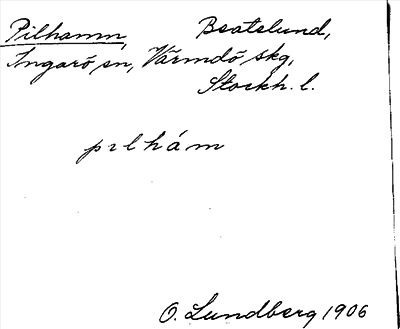 Pilhamn, Beatelund,
Ingarö sn, Värmdö skg,
Stockh. l.
pılhám
O. Lundberg 1906